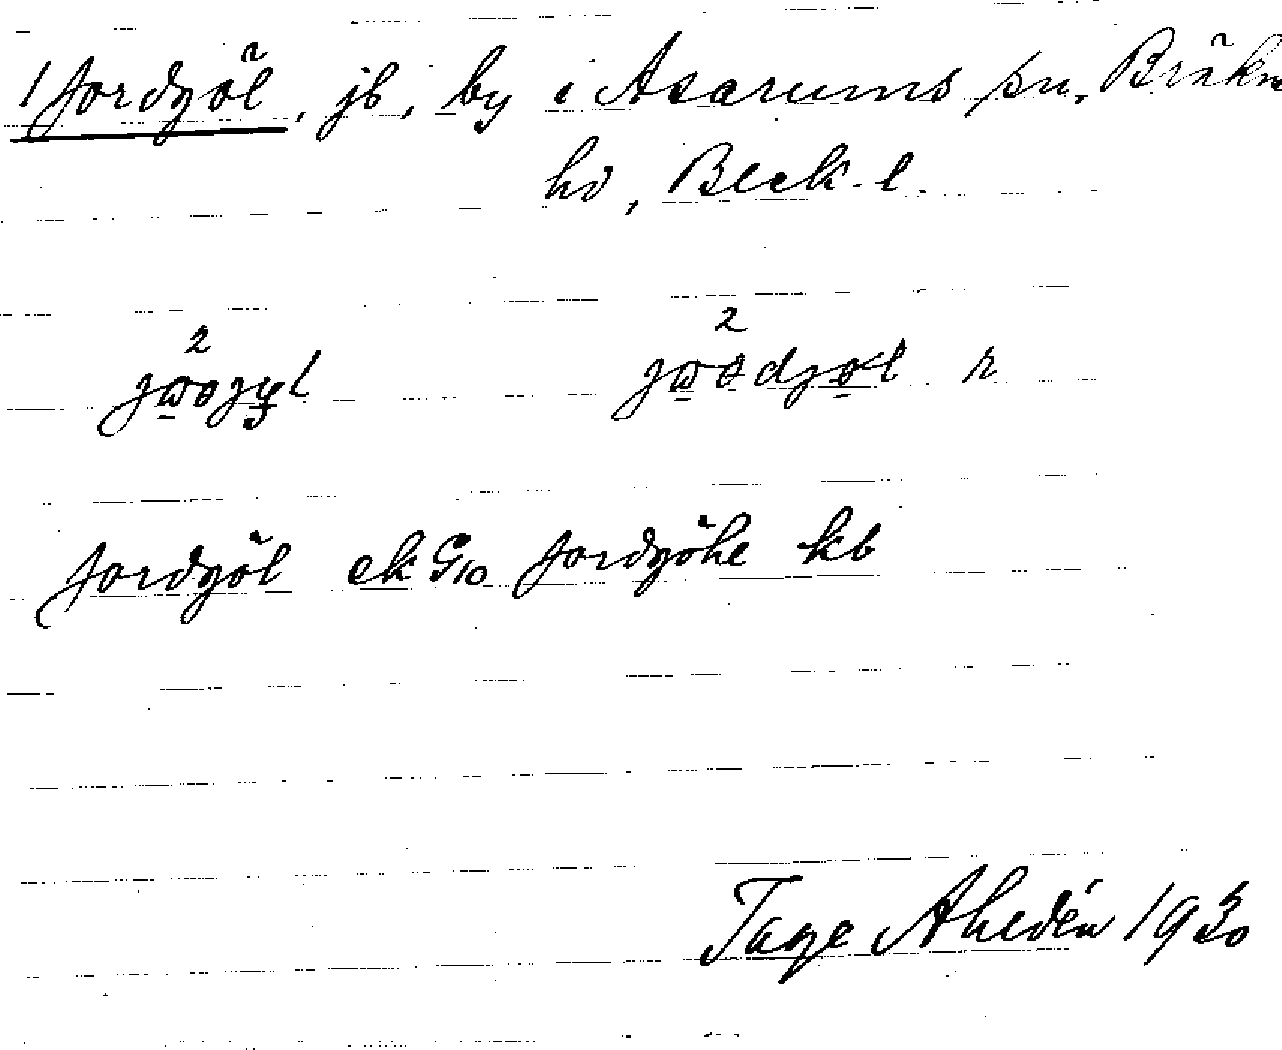 1 Jordgöl, jb, by i Asarums sn, Bräkne
hd, Blek. l.
2 2
jordgöl ek G10 jordgöhl kb
Tage Ahldén 1930